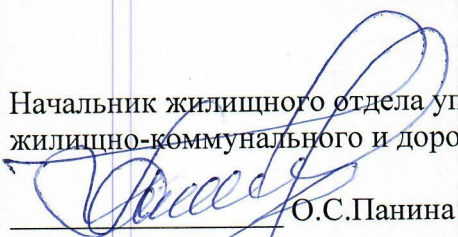 Начальник жилищного отдела уп
жилищно-коммунального и доро
О.С.Панина